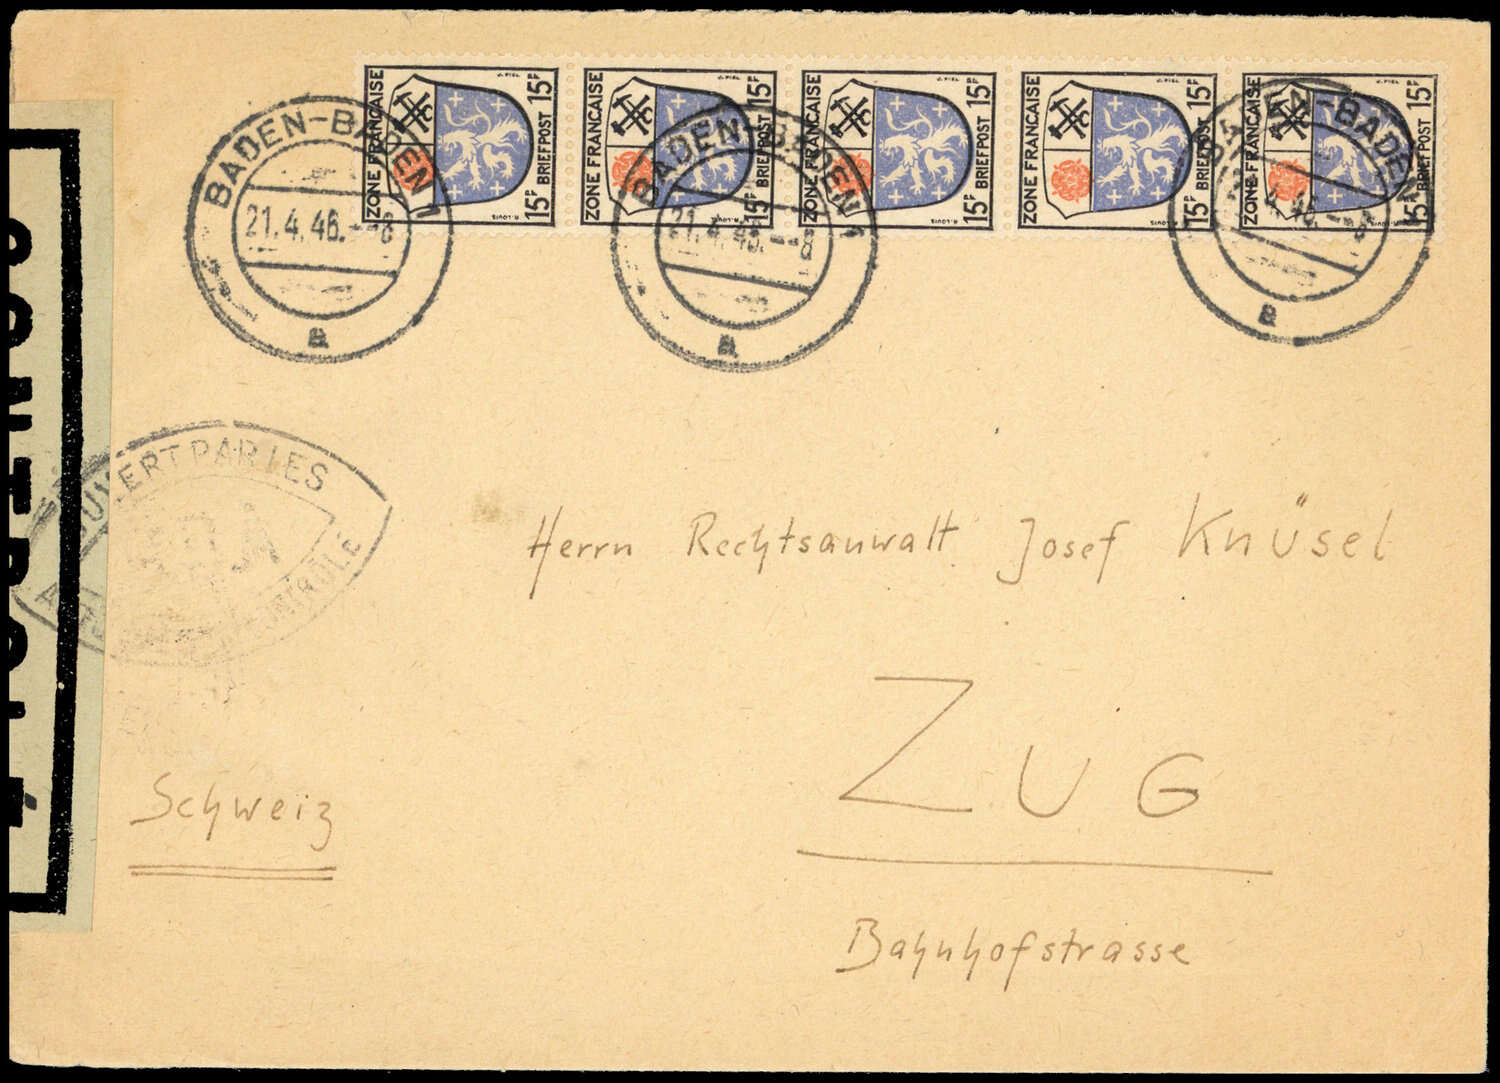 ZONE FRANÇAISE 15 PF BRIEFPOST 15 PF
ZONE FRANÇAISE 15 PF BRIEFPOST 15 PF
ZONE FRANÇAISE 15 PF BRIEFPOST 15 PF
ZONE FRANÇAISE 15 PF BRIEFPOST 15 PF
ZONE FRANÇAISE 15 PF BRIEFPOST 15 PF
BADEN-BADEN 1
21.4.46.--8
a
BADEN-BADEN 1
21.4.46.--8
a
BADEN-BADEN
4.46.--8
a
CONTROLE
OUVERT PAR LES
CONTRÔLE
Herrn Rechtsanwalt Josef Knüsel
ZUG
Schweiz
Bahnhofstrasse